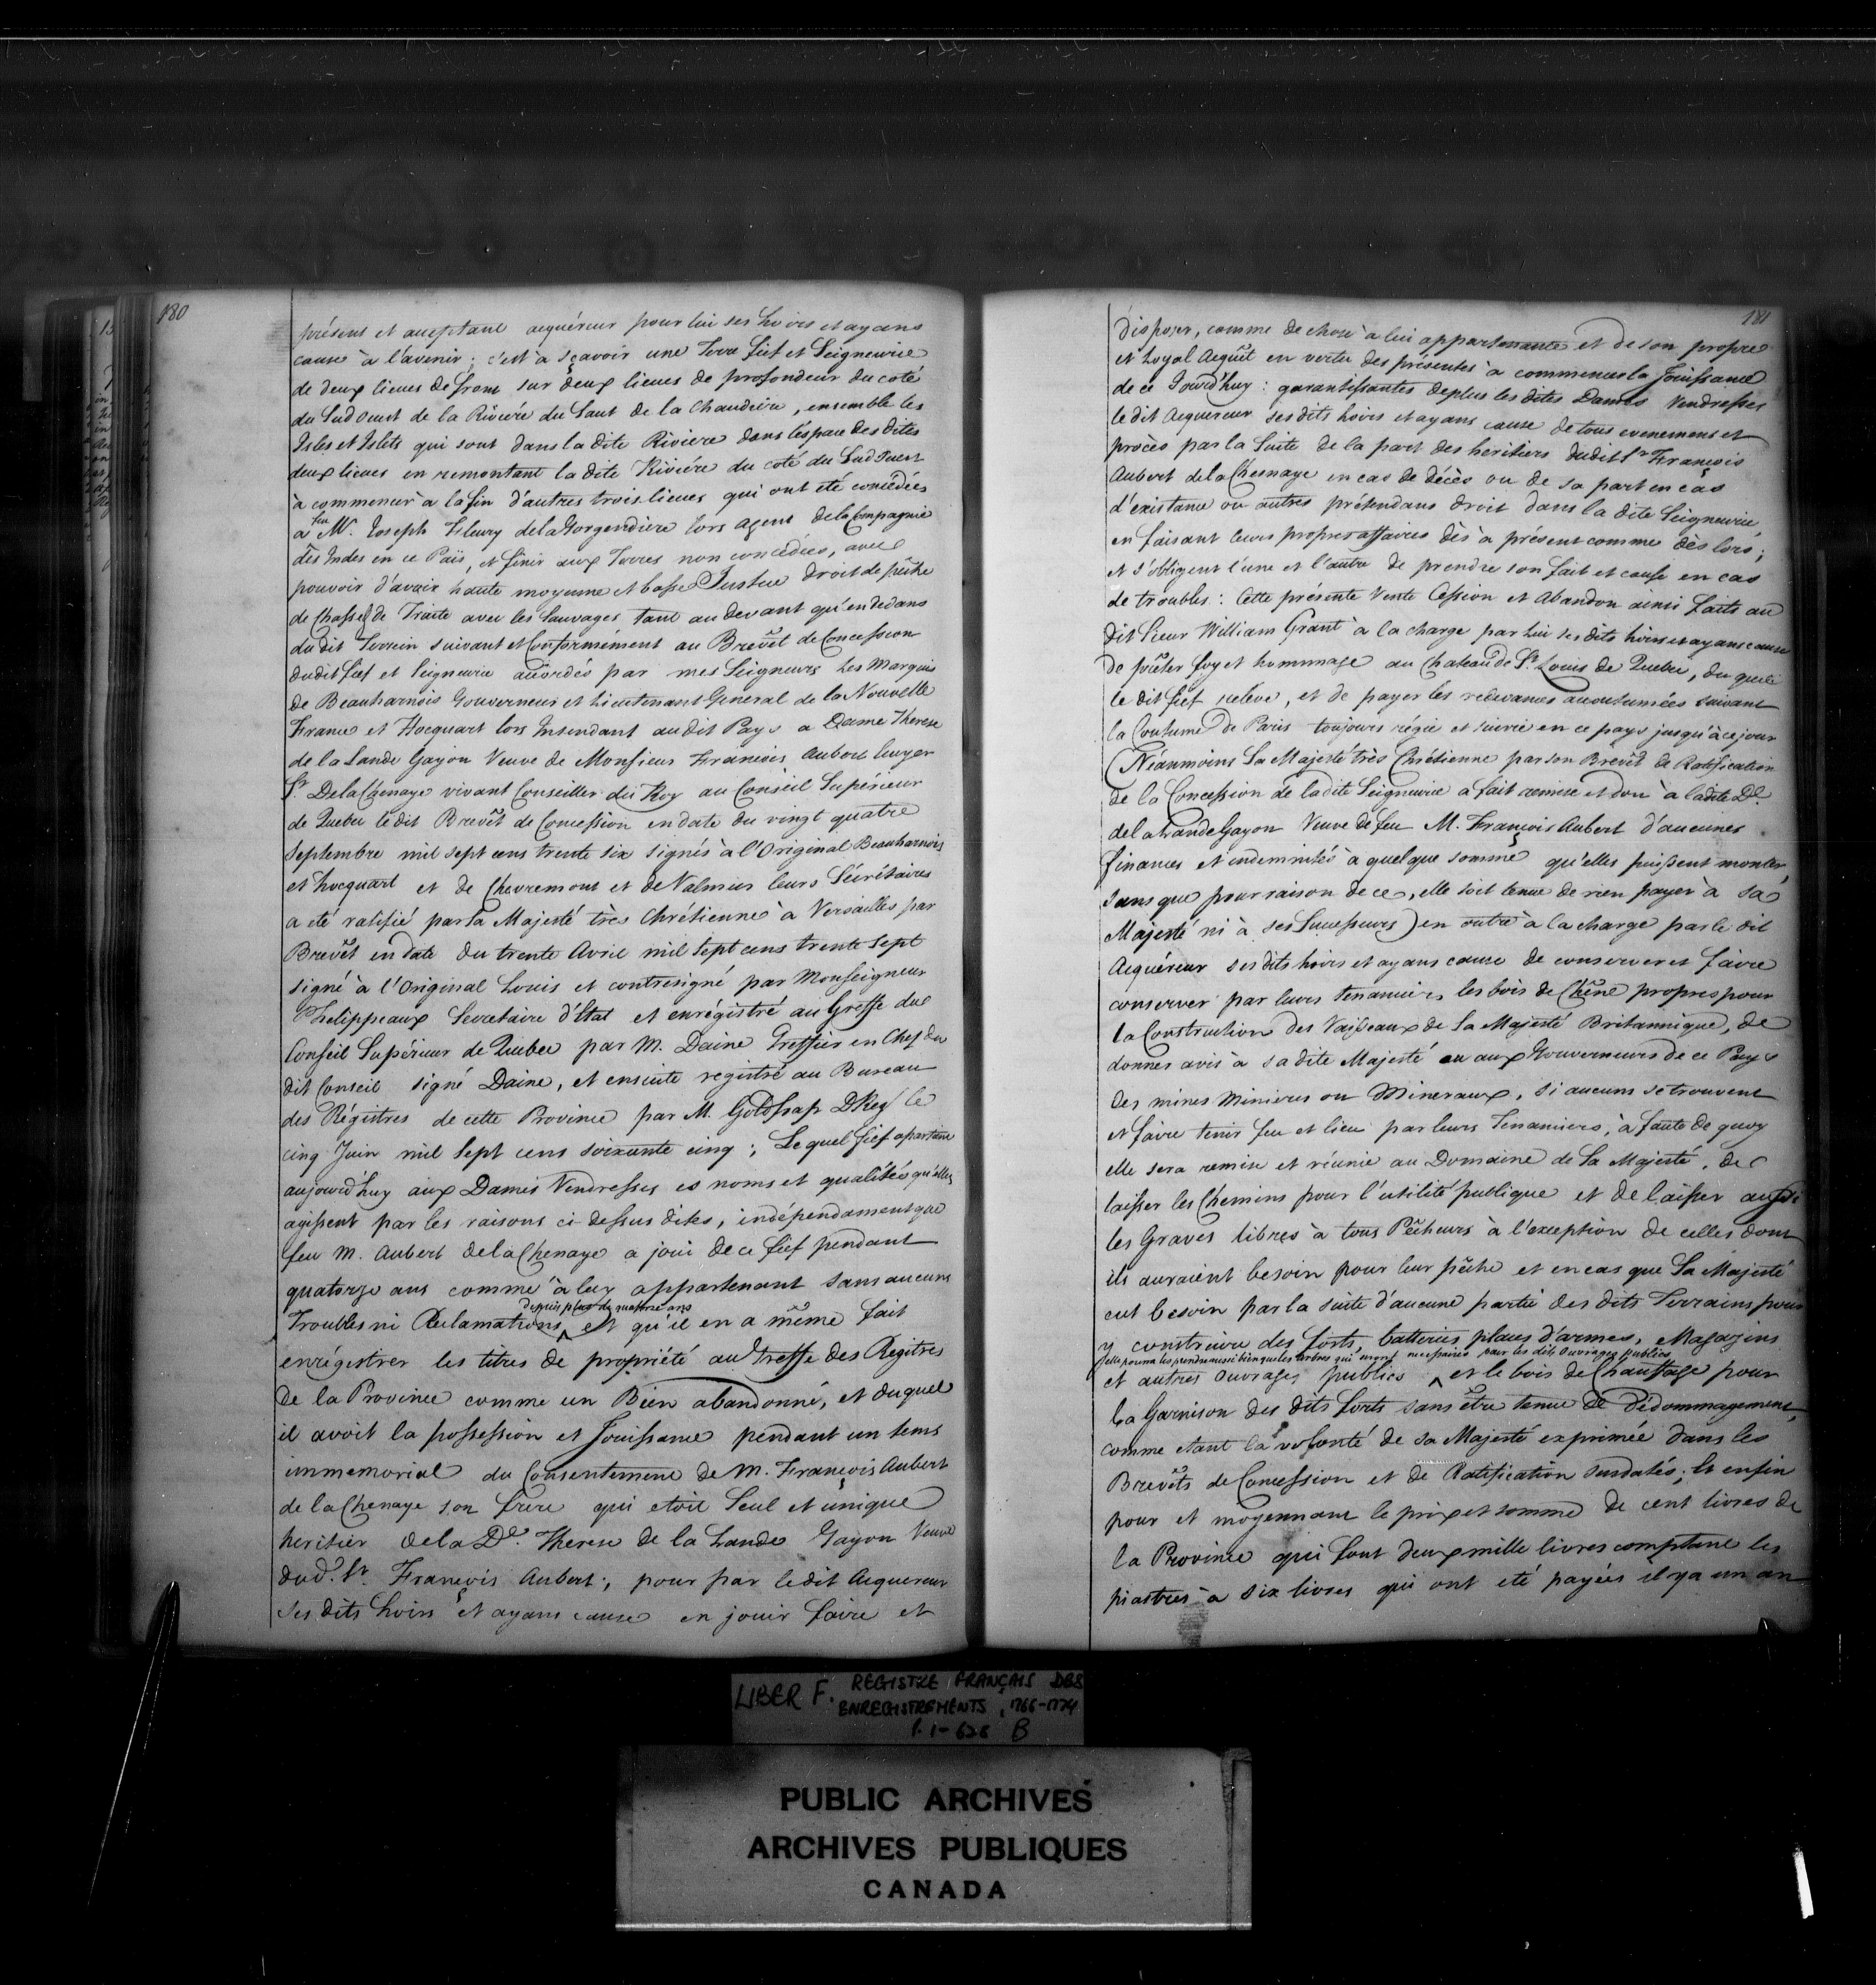 180
présent et acceptant acquéreur pour lui ses hoirs et ayans
cause à l'avenir; c'est à sçavoir une Terre fief et Seigneurie
de deux lieues de front sur deux lieues de profondeur du coté
du Sud Ouest de la Riviére du Saut de la Chaudiére, ensemble les
Isles et Islets qui sont dans la dite Riviere dans l'éspace des dites
deux lieues en remontant la dite Riviére du coté du Sud Ouest
à commencer à la fin d'autres trois lieues qui ont été concédées
à feu Mr. Joseph Fleury de la Gorgendiere lors agent de la Compagnie
des Indes en ce Païs, et finir aux Terres non concédées, avec
pouvoir d'avoir haute moyenne et basse Justice droit de pêche
de Chasse & de Traite avec les Sauvages tant au devant qu'en dedans
du dit Terrein suivant et Conformément au Brevêt de Concession
dudit fief et Seigneurie accordés par mes Seigneurs Les Marquis
de Beauharnois Gouverneur et Lieutenant General de la Nouvelle
France et Hocquart lors Intendant au dit Pays a Dame Therese
de la Lande Gayon Veuve de Monsieur François Aubert Ecuyer
Sr. De la Chenaye vivant Conseiller du Roy au Conseil Supérieur
de Quebec le dit Brevêt de Concession en date du vingt quatre
Septembre mil sept cens trente six signés à l'Original Beauharnois
et hocquart et de Chevremont et de Valmier leurs Sécrétaires
a eté ratifié par Sa Majesté très Chrétienne à Versailles par
Brevêt en date du trente Avril mil Sept cens trente Sept
signé à l'Original Louis et contresigné par Monseigneur
Phelippeaux Secretaire d'Etat et enrégistré au Greffe du
Conseil Supérieur de Quebec par M. Daine Greffier en Chef du
dit Conseil signé Daine, et ensuite registré au Bureau
des Régistres de cette Province par M. Goldfrap DReg le
cinq Juin mil Sept cens soixante cinq; Lequel fief apartient
aujourd'huy aux Dames Vendresses es noms et qualités qu'elles
agissent par les raisons ci dessus dites, indépendament que
feu M. Aubert de la Chenaye a joui de ce fief pendant
quatorze ans comme à luy appartenant sans aucuns
depuis plus de quatorze ans
Troubles ni Reclamations ^ et qu'il en a même fait
enrégistrer les titres de propriété au Greffe des Registres
de la Province comme un Bien abandonné, et duquel
il avoit la possession et Jouissance pendant un tems
immemorial du Consentement de M. François Aubert
de la Chenaye son frere qui etoit Seul et unique
heritier de la De. Therese de la Lande Gayon Veuve
dud. Sr. François Aubert; pour par le dit Acquereur
ses dits hoirs et ayans cause en jouir faire et
181
disposer, comme de chose à lui appartenante et de son propre
et Loyal Acquêt en vertu des présentes à commencer la Jouissance
de ce Jourd'huy: garantissantes deplus les dites Dames Vendresses
le dit Acquereur ses dits hoirs et ayans cause de tous evenemens et
procès par la Suite de la part des héritiers dudit Sr. François
Aubert de la Chesnaye en cas de décès ou de sa part en cas
d'existance ou autres prétendans droit dans la dite Seigneurie,
en faisant leurs propres affaires dès à présent comme dès lors;
et s'obligent l'une et l'autre de prendre son fait et cause en cas
de troubles: Cette présente Vente Cession et Abandon ainsi faits au
dit Sieur William Grant à la charge par lui ses dits hoirs et ayans cause
de prêter foy et hommage au Chateau de St. Louis de Quebec, du quel
le dit fief reléve, et de payer les redevances accoutumées suivant
la Coutume de Paris toujours régie et suivie en ce pays jusqu'à ce jour
(Néanmoins Sa Majesté très Chrétienne par son Brevêt de Ratification
de la Concession de ladite Seigneurie a fait remise et don à ladite De.
de la Lande Gayon Veuve de feu M. François Aubert d'aucunes
finances et indemnités à quelque somme qu'elles puissent monter,
sans que pour raison de ce, elle soit tenue de rien payer à Sa
Majesté ni à ses Successeurs) en outre à la charge par le dit
Acquéreur ses dits hoirs et ayans cause de conserver et faire
conserver par leurs tenanciers les bois de Chêne propres pour
la Construction des Vaisseaux de Sa Majesté Britannique, de
donner avis à sa dite Majesté ou aux Gouverneurs de ce Pays
des mines Minieres ou Mineraux, si aucuns se trouvent
et faire tenir feu et lieu par leurs Tenanciers, à faute de quoy
elle sera remise et réunie au Domaine de Sa Majesté, de
laisser les Chemins pour l'utilité publique et de laisser aussi
les Graves libres à tous Pêcheurs à l'exception de celles dont
ils auraient besoin pour leur pêche et en cas que Sa Majesté
eut besoin par la suite d'aucune partie des dits Terrains pour
y construire des forts, batteries places d'armes, Magazins
elle pourra les prendre aussi bien que les arbres qui seront necessaires pour les dits Ouvrages publics
et autres Ouvrages publics ^ et le bois de Chauffage pour
la Garnison des dits forts sans être tenue de dédommagement,
comme etant la volonté de Sa Majesté exprimée dans les
Brevêts de Concession et de Ratification susdatés; Et enfin
pour et moyennant le prix et somme de cent livres de
la Province qui font deux mille livres comptant les
piastres à six livres qui ont eté payées il y a un an
LIBER F. REGISTRE FRANÇAIS DES
ENREGISTREMENTS, 1766-1774
P. 1-628 B
PUBLIC ARCHIVES
ARCHIVES PUBLIQUES
CANADA